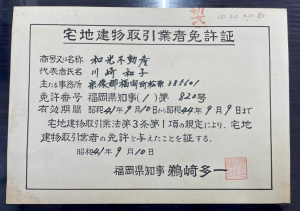 宅地建物取引業者免許証
商号又は名称 和光不動産
代表者氏名 川崎和子
主たる事務所
免許番号 福岡県知事(1)第820号
有効期間 昭和41年9月10日から昭和44年9月9日まで
宅地建物取引業法第3条第1項の規定により、宅地
建物取引業者の免許を与えたことを証する。
昭和41年9月10日
福岡県知事 鵜崎多一